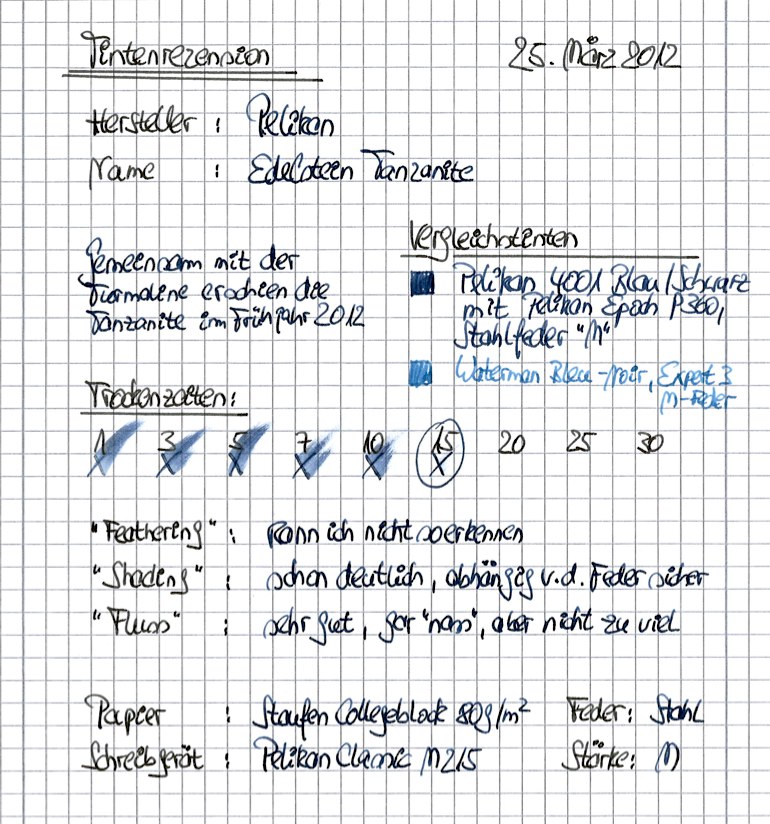 Tintenrezension
25. März 2012
Hersteller : Pelikan
Name : Edelsteen Tanzanite
Gemeinsam mit der
Turmaline erschien die
Tanzanite im Frühjahr 2012
Vergleichstinten
Pelikan 4001 Blau/Schwarz
mit Pelikan Epoch P360,
Stahlfeder "M"
Waterman Bleu-Noir, Expert 3
M-Feder
Trockenzeiten:
1 3 5 7 10 15 20 25 30
"Feathering" : kann ich nicht so erkennen
"Shading" : schon deutlich, abhängig v.d. Feder sicher
"Fluss" : sehr gut, gar "nass", aber nicht zu viel
Papier : Staufen Collegeblock 80g/m² Feder: Stahl
Schreibgerät : Pelikan Classic M215 Stärke: M